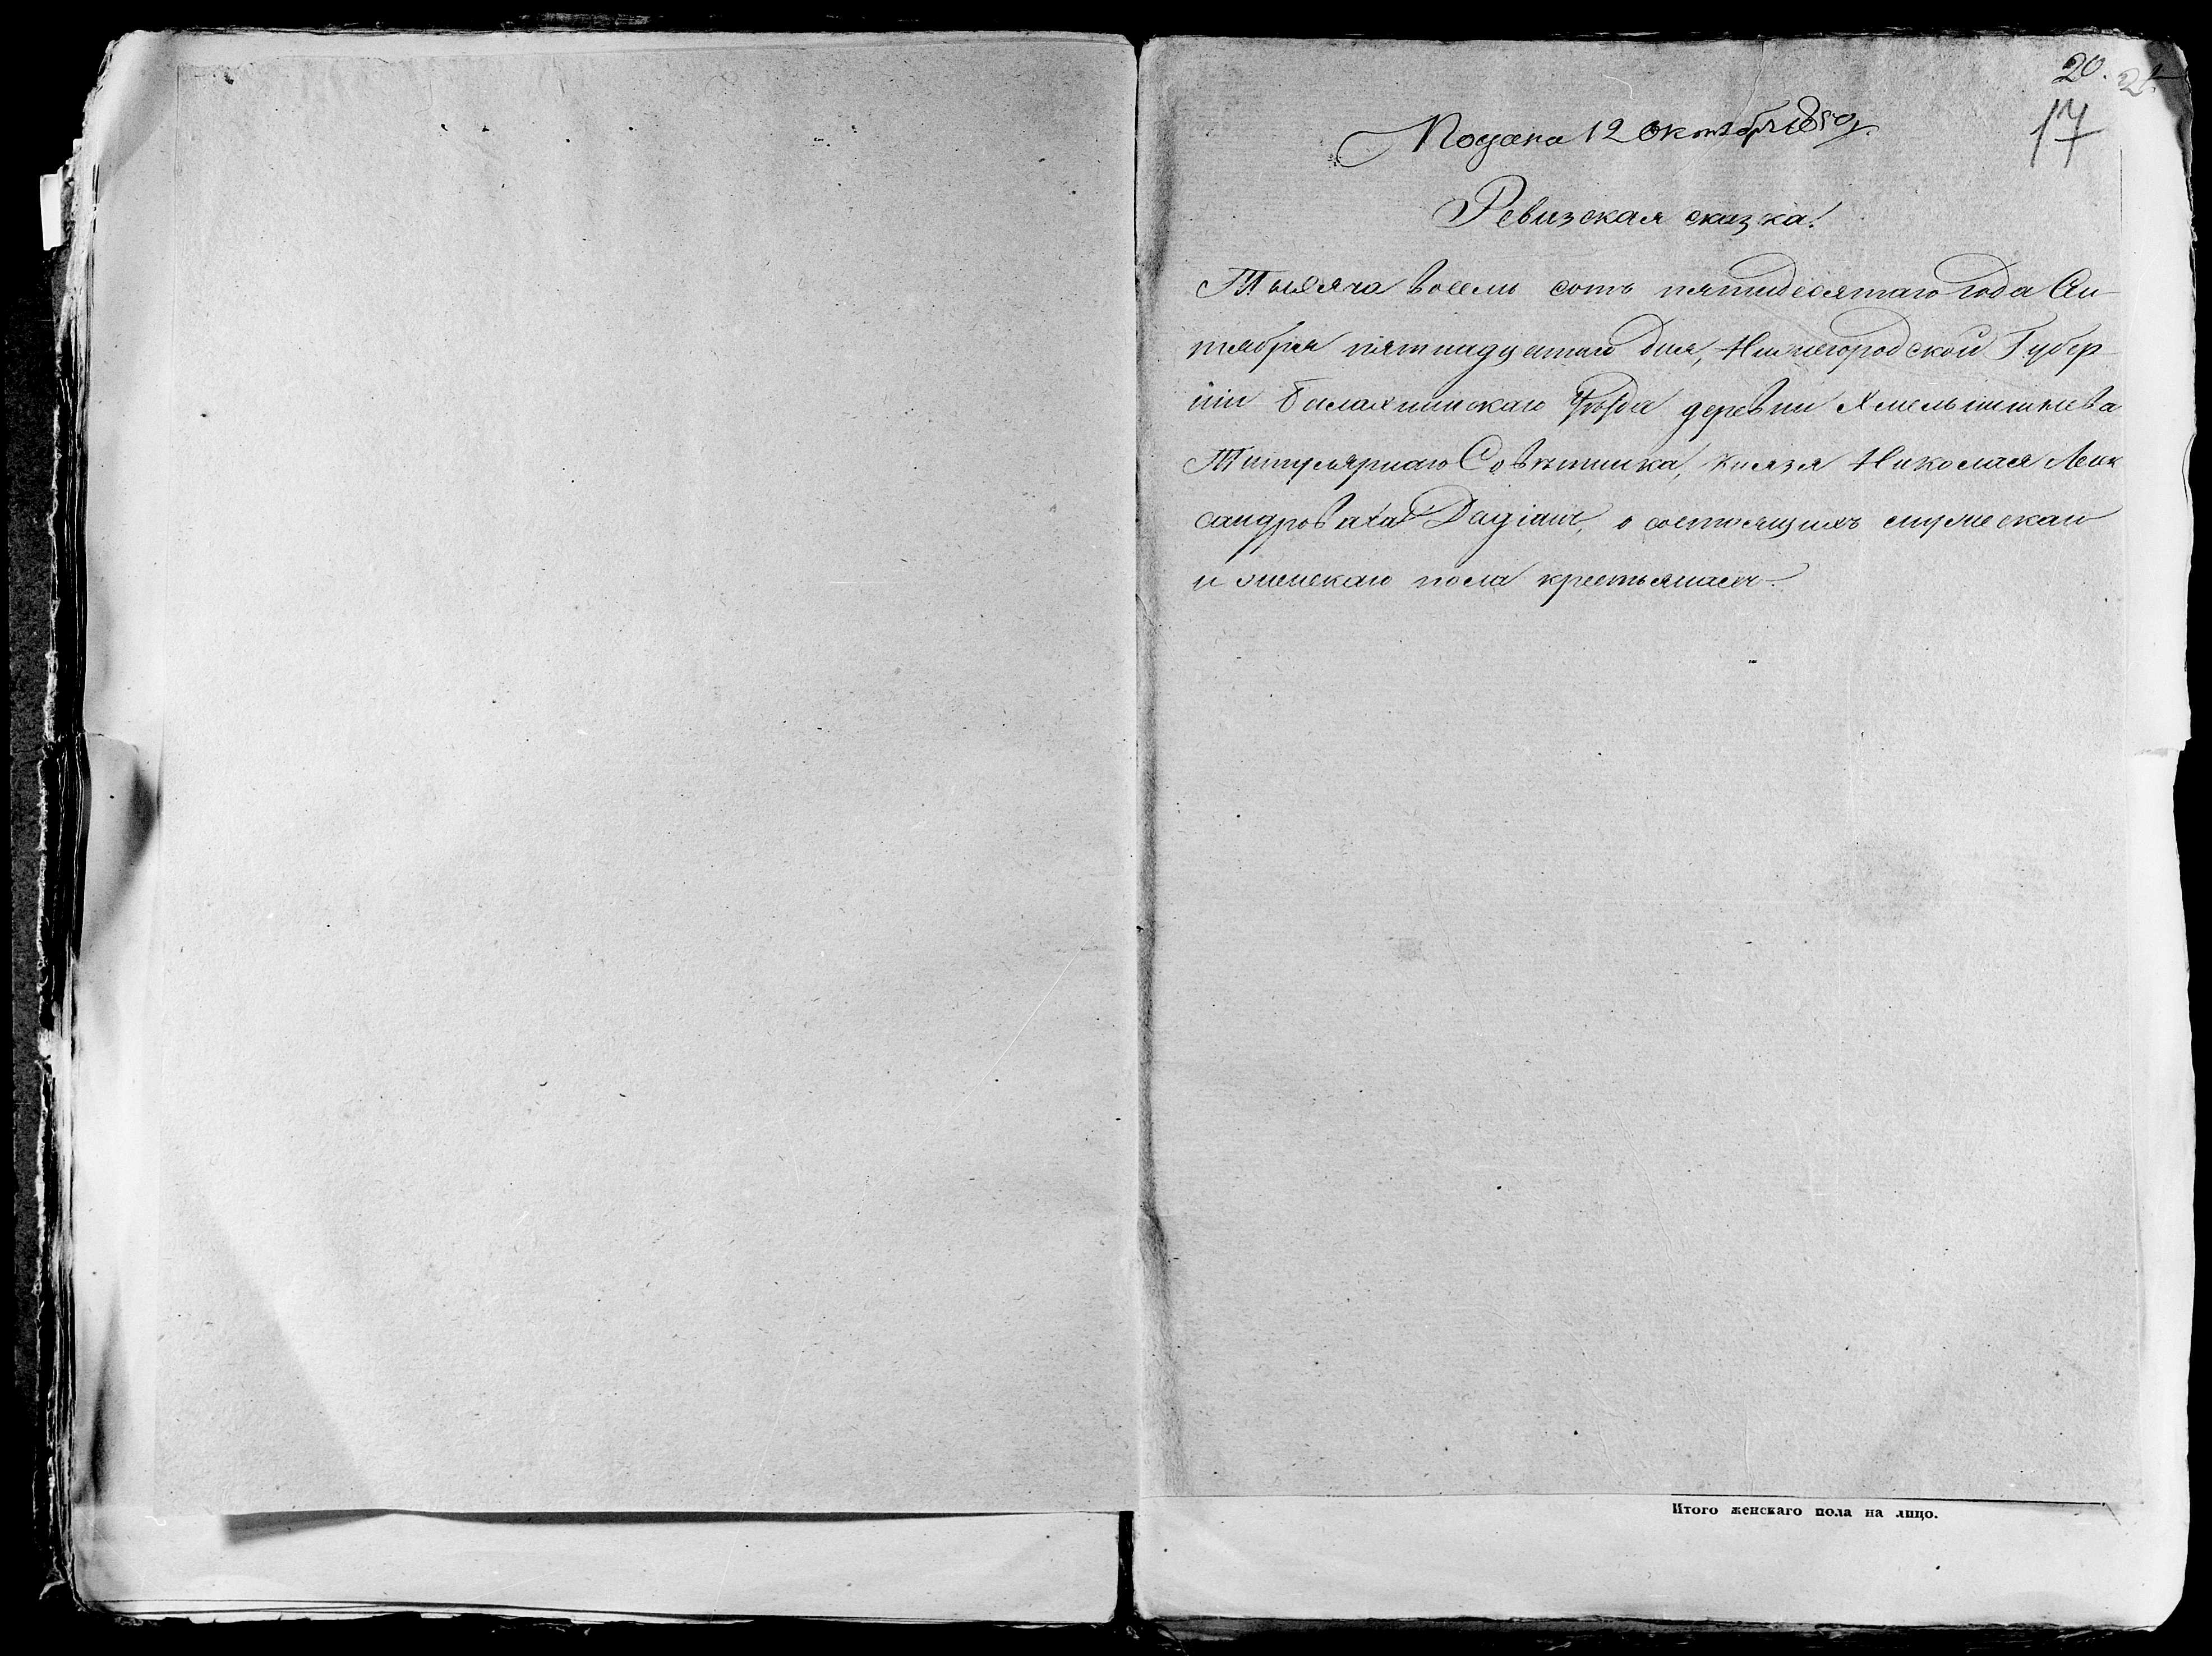 20. 21.
17
Подана 12 октября 1850 г.
Ревизская сказка!
Тысяча восемь сотъ пятидесятаго года Сен-
тября пятнадцатаго дня, Нижегородской Губер-
ніи Балахнинскаго Уѣзда деревни Хмельникова
Титулярнаго Совѣтника, Князя Николая Алек
сандровича Дадіанъ, о состоящихъ мужескаго
и женскаго пола крестьянахъ.
Итого женскаго пола на лицо.